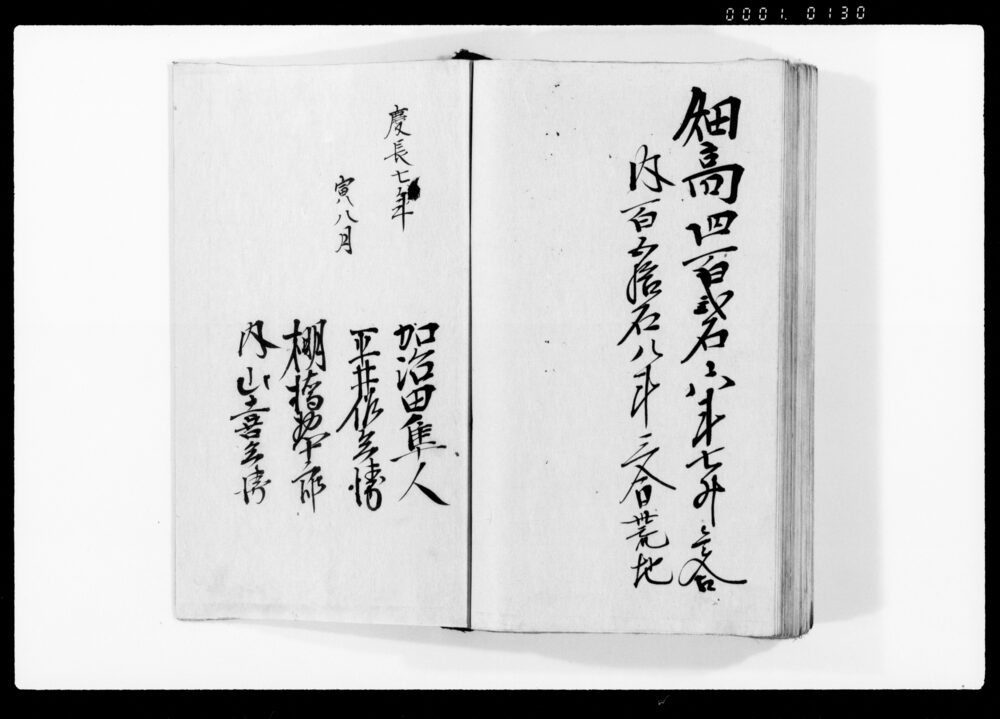 0001.0130
畑高四百弐石六斗七升三合
内百五拾石八斗三合荒地
慶長七年
寅八月
加治田隼人
平井作兵衛
棚橋
内山喜兵衛